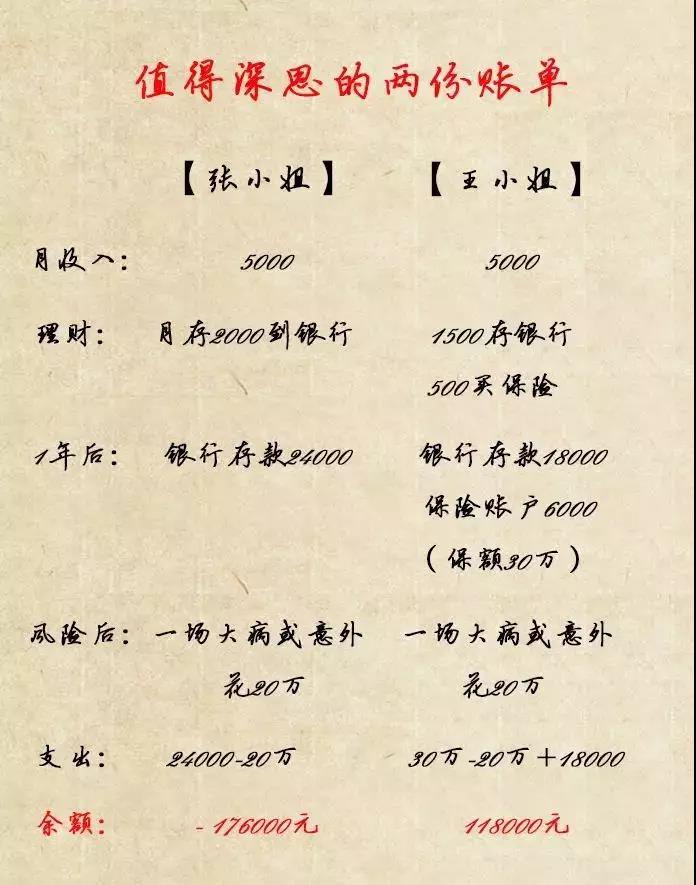 值得深思的两份账单
【张小姐】 【王小姐】
月收入: 5000 5000
理财: 月存2000到银行 1500存银行
500买保险
1年后: 银行存款24000 银行存款18000
保险账户6000
(保额30万)
风险后: 一场大病或意外 一场大病或意外
花20万 花20万
支出: 24000-20万 30万-20万+18000
余额: -176000元 118000元